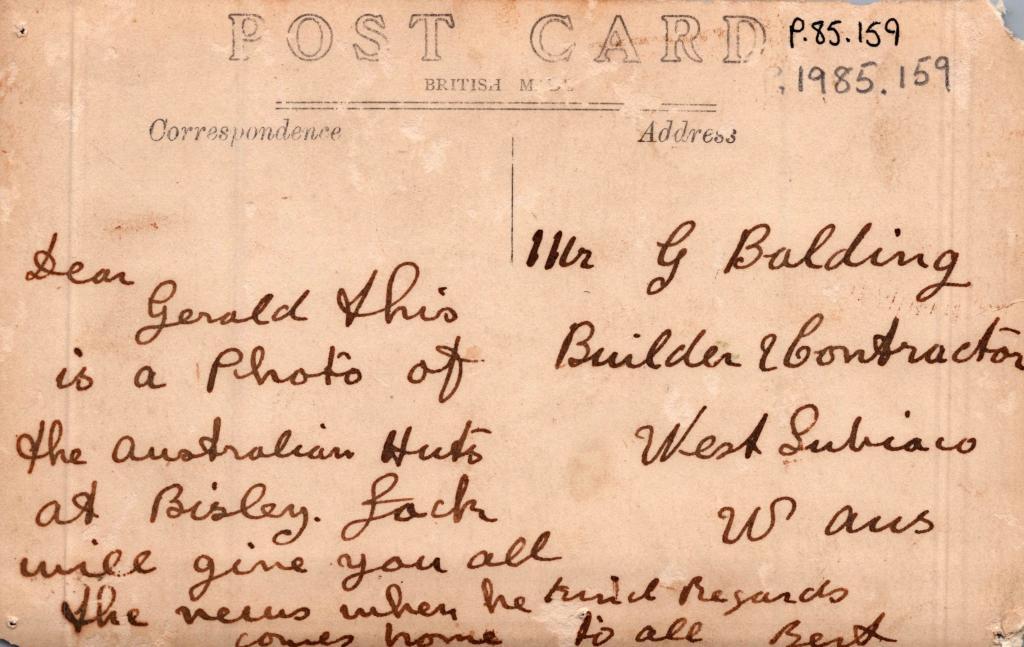 POST CARD
P.85.159
P.1985.159
BRITISH MADE
Correspondence
Address
Dear
Gerald this
is a Photo of
the Australian Huts
at Bisley. Jack
will give you all
the news when he
comes home
Kind Regards
to all Bert
Mr G Balding
Builder & Contractor
West Subiaco
W Aus